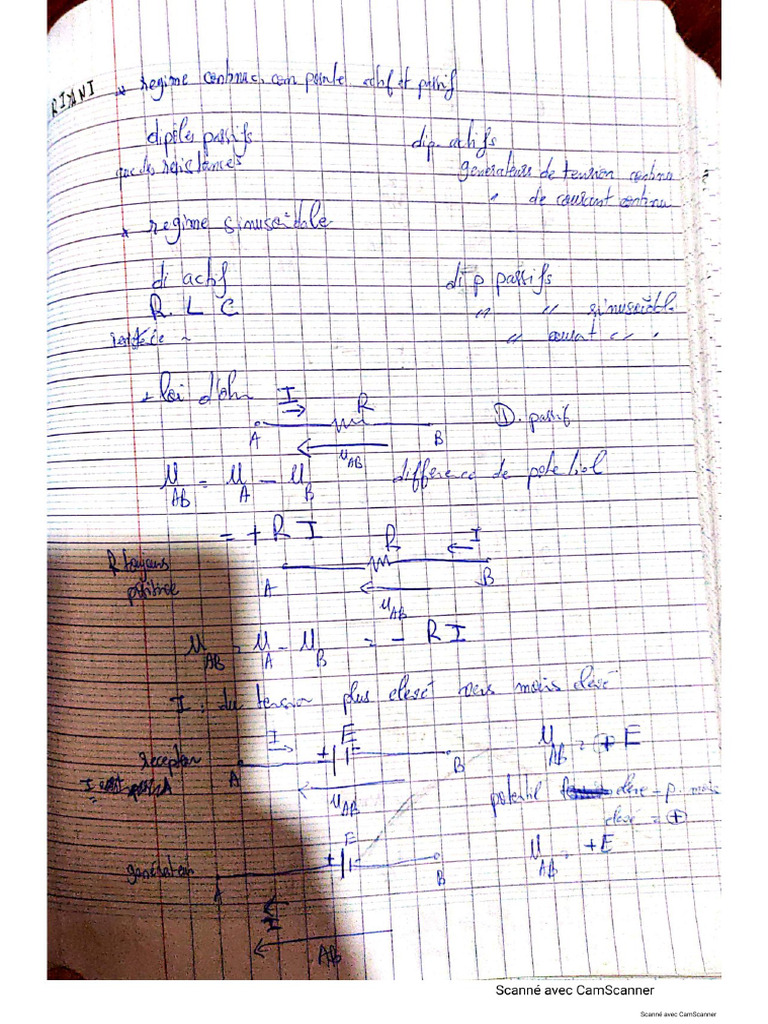 RIKANI
* regime continue, composante actif et passif
dipôles passifs dip. actifs
que des resistances generateurs de tension continu
" de courant continu
* regime sinusoidale
di actif dip passifs
R. L C " " sinusoidal
" courant " "
+ loi d'ohm I R
A B D. passif
U_AB
U_AB = U_A - U_B difference de potentiel
= + R I
R toujours R I
positive A B
U_AB
U_AB = U_A - U_B = - R I
I : du tension plus elevé vers moins elevé
I E
recepteur + A B U_AB = + E
I
U_AB potentiel eleve - p. mois
eleve = +
E
generateur + A B U_AB = +E
I
AB
Scanné avec CamScanner
Scanné avec CamScanner